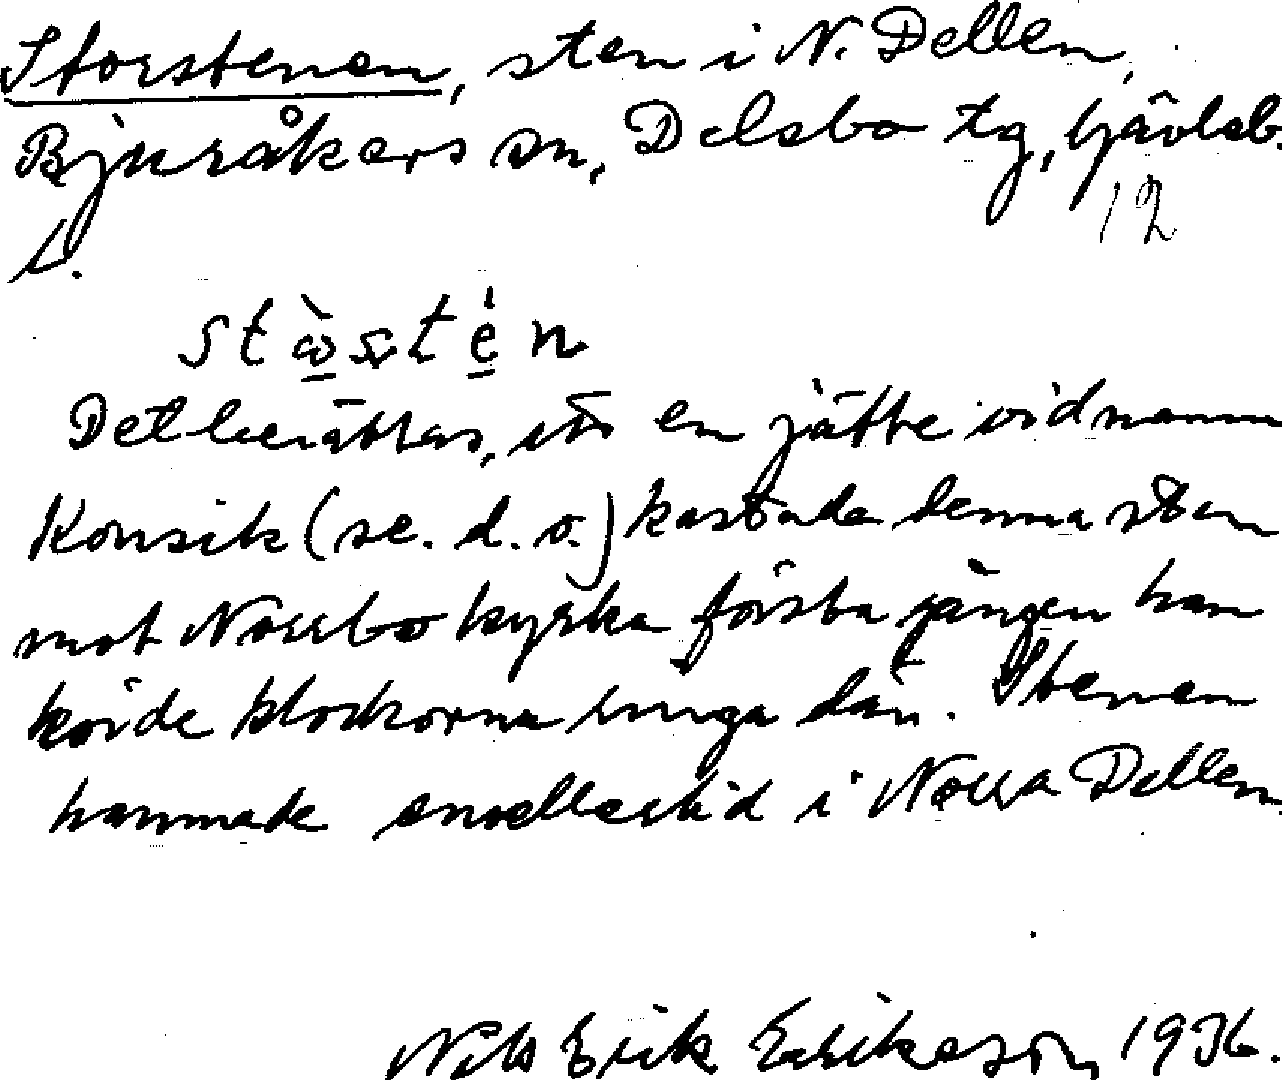 Storstenen, sten i N. Dellen,
Bjuråkers sn, Delsbo tg, Gävleb.
12
L.
Det berättas, att en jätte vid namn
Konsik (se. d. o.) kastade denna sten
mot Norrbo kyrka första gången han
hörde klockorna ringa där. Stenen
hamnade emellertid i Norra Dellen.
Nils Erik Erikeson, 1936.